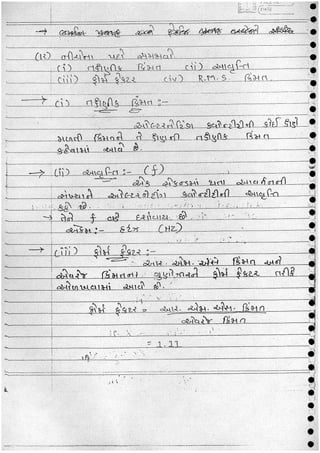 (12) નીચેના પદો સમજાવો
(i) તત્ક્ષણીક કિંમત (ii) આવૃત્તિ
(iii) ફોર્મ ફેક્ટર (iv) R.M.S. કિંમત.
→ (i) તત્ક્ષણીક કિંમત :-
ઓલ્ટરનેટિંગ ક્વોન્ટીટીની કોઈ ક્ષણે
મળતી કિંમતને તે ક્ષણની તત્ક્ષણીક કિંમત
કહેવામાં આવે છે.
→ (ii) આવૃત્તિ :- (f)
એક સેકન્ડમાં થતા આવર્તનની
સંખ્યાને ઓલ્ટરનેટીંગ ક્વોન્ટીટીની આવૃત્તિ
કહે છે.
→ તેને f વડે દર્શાવાય છે
એકમ :- હર્ટઝ (HZ)
→ (iii) ફોર્મ ફેક્ટર :-
આર. એમ. એસ કિંમત અને
એવરેજ કિંમતના ગુણોત્તરને ફોર્મ ફેક્ટર તરીકે
ઓળખવામાં આવે છે.
ફોર્મ ફેક્ટર = આર. એમ. એસ. કિંમત
એવરેજ કિંમત
= 1.11